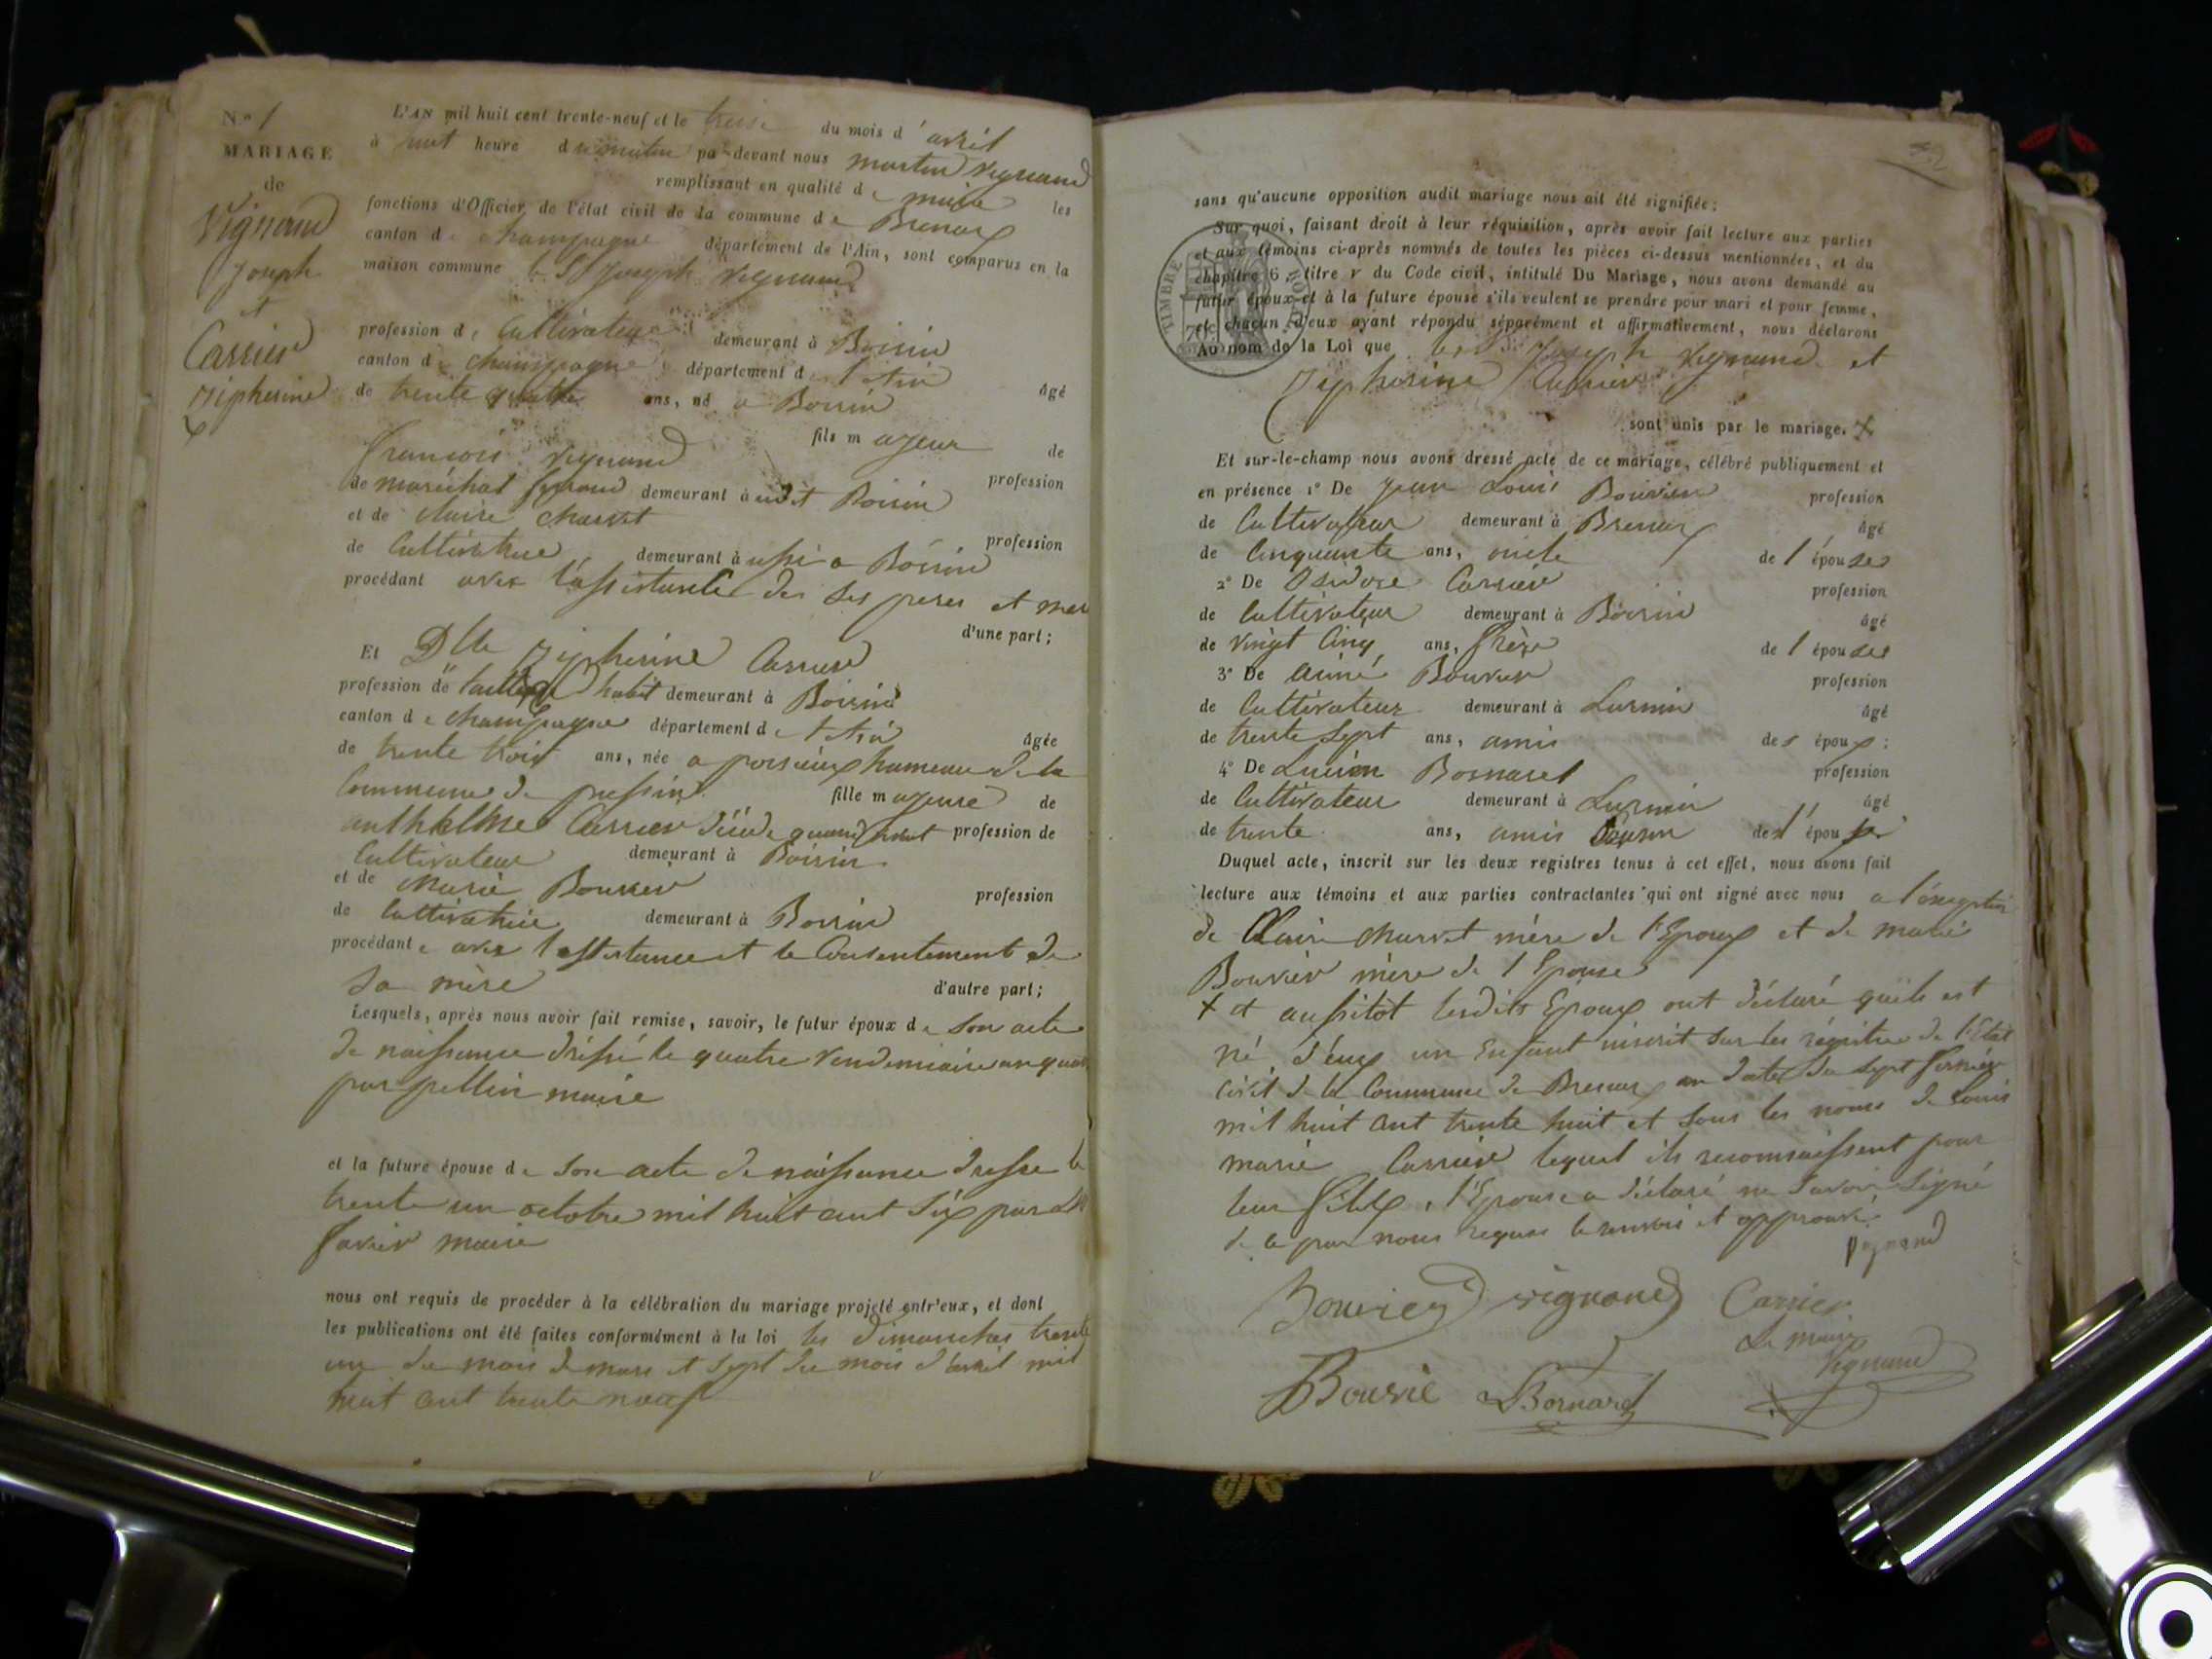 N° 1
MARIAGE
de
Vignand
Joseph
et
Carrier
Zipherine
L'AN mil huit cent trente-neuf et le treise du mois d'avril
à huit heure du matin par-devant nous martin Vignand
remplissant en qualité de maire les
fonctions d'Officier de l'état civil de la commune de Brenaz
canton de champagne département de l'Ain, sont comparus en la
maison commune le Sr Joseph Vignand
profession de Cultivateur demeurant à Boirin
canton de champagne département de l'Ain âgé
de trente quatre ans, né a Boirin
fils majeur de
francois Vignand profession
de maréchal demeurant à udit Boirin
et de claire charvet profession
de Cultivatrice demeurant à ussi a Boirin
procédant avec l'assistance des ses peres et mere
d'une part;
Et Dlle Zipherine Carrier
profession de tailleuse d'habit demeurant à Boirin
canton de champagne département de l'Ain âgée
de trente trois ans, née a poisieux hameau de la
Commune de pussin fille majeure de
anthelme Carrier profession de
Cultivateur demeurant à Boirin
et de Marie Bouvier profession
de Cultivatrice demeurant à Boirin
procédante avec l'assistance et le Consentement de
sa mère d'autre part;
Lesquels, après nous avoir fait remise, savoir, le futur époux de son acte
de naissance dréssé le quatre vendemiaire an
par pellin maire
et la future épouse de son acte de naissance dresse le
trente un octobre mil huit cent six par
favier maire
nous ont requis de procéder à la célébration du mariage projeté entr'eux, et dont
les publications ont été faites conformément à la loi les dimanches trente
un du mois de mars et sept du mois d'avril mil
huit cent trente neuf
sans qu'aucune opposition audit mariage nous ait été signifiée;
Sur quoi, faisant droit à leur réquisition, après avoir fait lecture aux parties
et aux témoins ci-après nommés de toutes les pièces ci-dessus mentionnées, et du
chapitre 6, titre v du Code civil, intitulé Du Mariage, nous avons demandé au
futur époux et à la future épouse s'ils veulent se prendre pour mari et pour femme,
et chacun d'eux ayant répondu séparément et affirmativement, nous déclarons
Au nom de la Loi que le Sr Joseph Vignand et
Zipherine Carrier
sont unis par le mariage. X
Et sur-le-champ nous avons dressé acte de ce mariage, célébré publiquement et
en présence 1° De Jean Louis Bouvier profession
de Cultivateur demeurant à Brenaz âgé
de Cinquante ans, oncle de l'épouse
2° De Isidore Carrier profession
de Cultivateur demeurant à Boirin âgé
de vingt Cinq ans, frère de l'épouse
3° De aimé Bouvier profession
de Cultivateur demeurant à Lurmin âgé
de trente sept ans, amis des époux;
4° De Lucien Bornarel profession
de Cultivateur demeurant à Lurmin âgé
de trente ans, amis de l'épouse
Duquel acte, inscrit sur les deux registres tenus à cet effet, nous avons fait
lecture aux témoins et aux parties contractantes qui ont signé avec nous a l'éxeption
de Claire charvet mère de l'Epoux et de marie
Bouvier mère de l'Epouse
X et aussitot lesdits Epoux ont déclaré qu'ils est
né d'eux un Enfant inscrit sur les régistres de l'Etat
civil de la Commune de Brenaz en date du sept fevrier
mil huit cent trente huit et sous les noms de Louis
marie Carrier lequel ils reconnaissent pour
leur fils, l'Epouse a déclaré ne savoir signé
de ce par nous requis le renvoi et approuvé
Vignand
Bouvier Vignand Carrier
Le maire
Vignand
Bouvié LBornarel
TIMBRE ROYAL